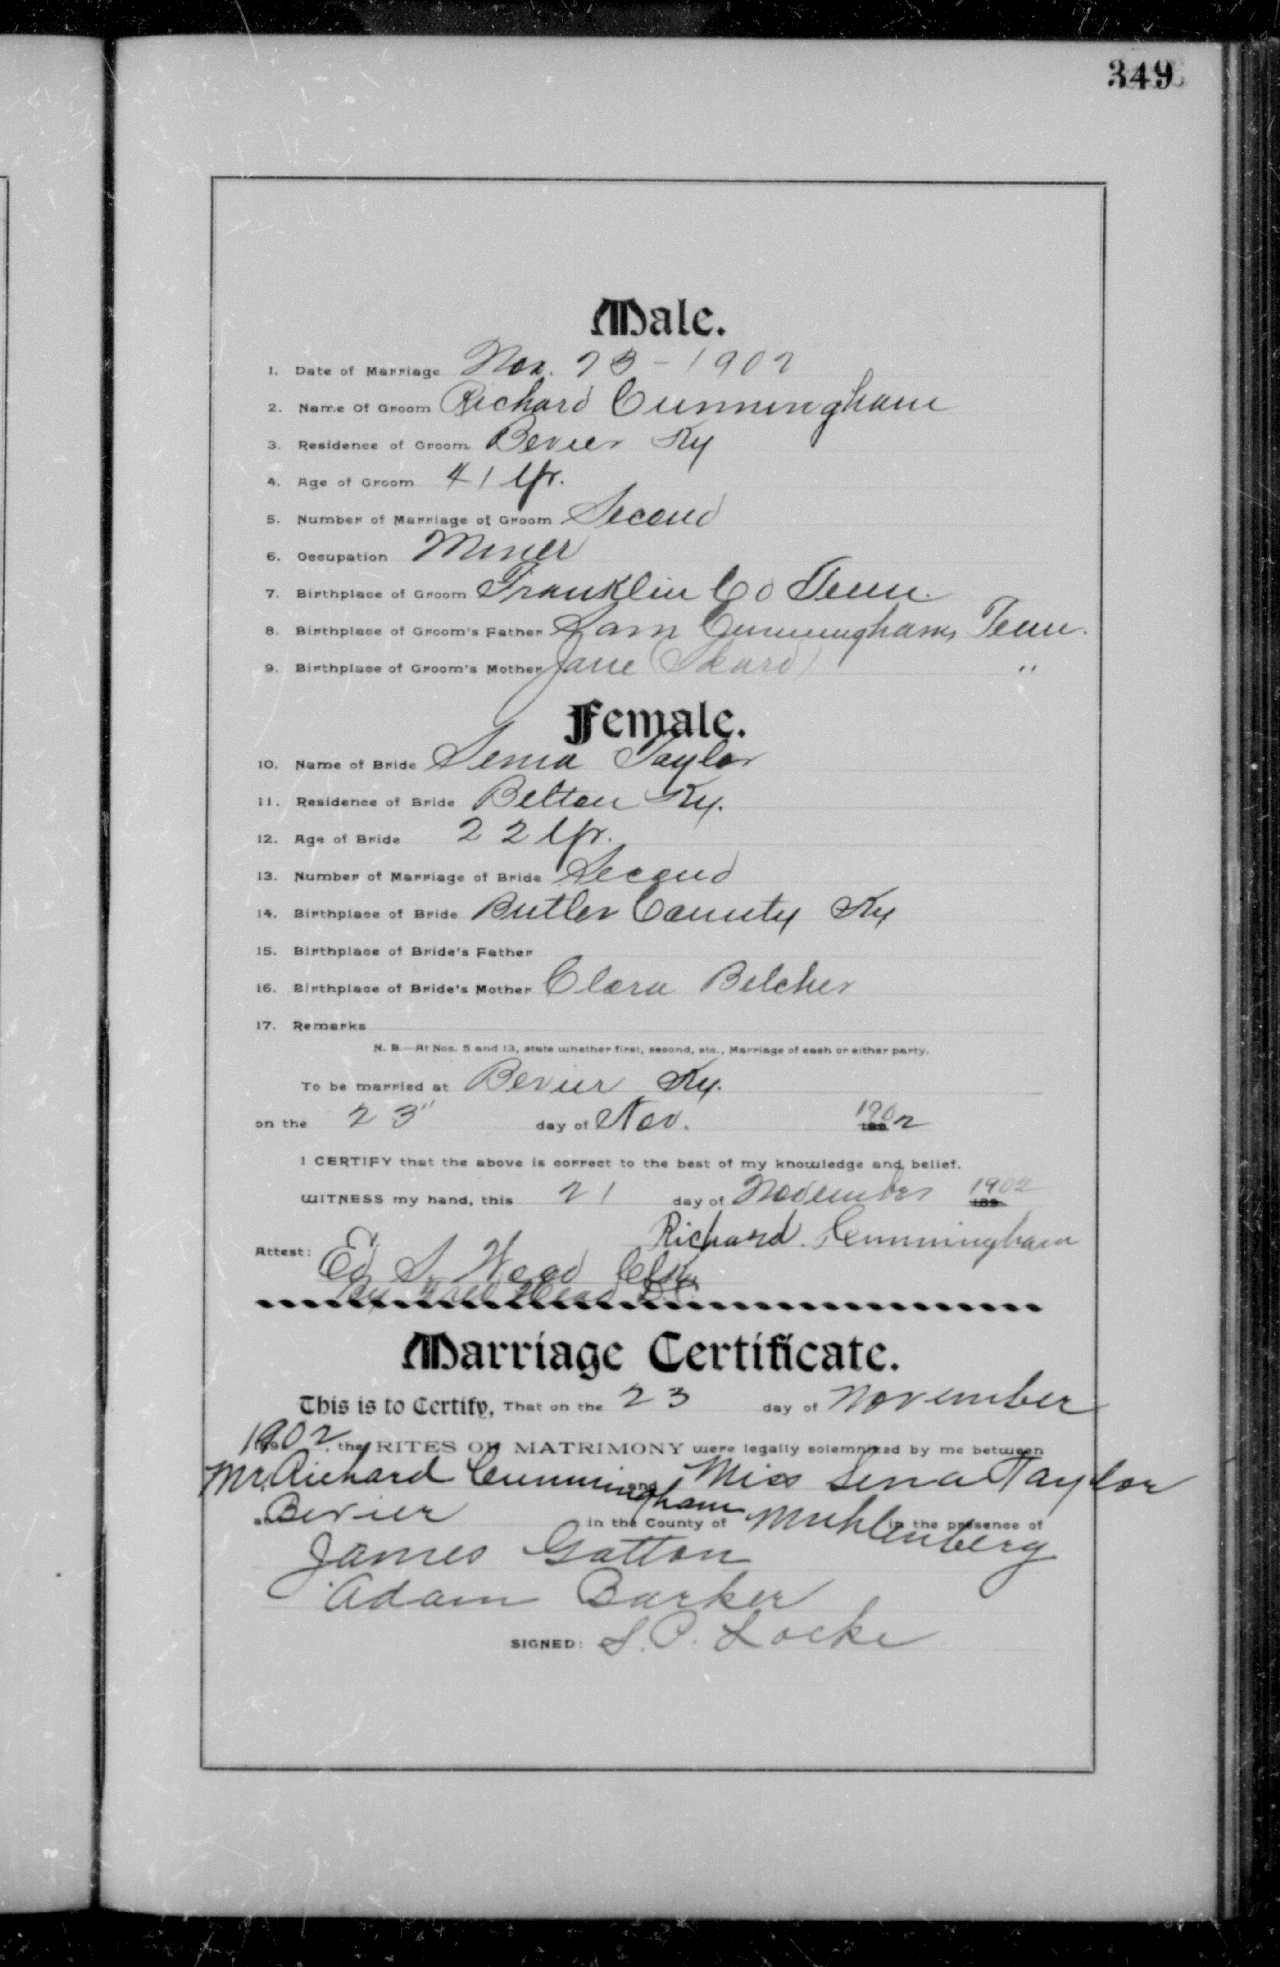 349
Male.
1. Date of Marriage Nov. 23 - 1902
2. Name Of Groom Richard Cunningham
3. Residence of Groom Bevier Ky
4. Age of Groom 41 Yr.
5. Number of Marriage of Groom Second
6. Occupation Miner
7. Birthplace of Groom Franklin Co Tenn.
8. Birthplace of Groom's Father Sam Cunningham, Tenn.
9. Birthplace of Groom's Mother Jane "
Female.
10. Name of Bride Taylor
11. Residence of Bride Belton Ky.
12. Age of Bride 22 Yr.
13. Number of Marriage of Bride Second
14. Birthplace of Bride Butler County Ky
15. Birthplace of Bride's Father
16. Birthplace of Bride's Mother Clara Belcher
17. Remarks
N. B.—At Nos. 5 and 13, state whether first, second, etc., Marriage of each or either party.
To be married at Bevier Ky.
on the 23" day of Nov. 1902
I CERTIFY that the above is correct to the best of my knowledge and belief.
WITNESS my hand, this 21 day of November 1902
Richard Cunningham
Attest: Ed S. Wood Clk
By D.C.
Marriage Certificate.
This is to Certify, That on the 23 day of November
1902, the RITES OF MATRIMONY were legally solemnized by me between
Mr. Richard Cunningham and Miss Lena Taylor
at Bevier in the County of Muhlenberg in the presence of
James Gatton
Adam Barker
SIGNED: S. P. Locke